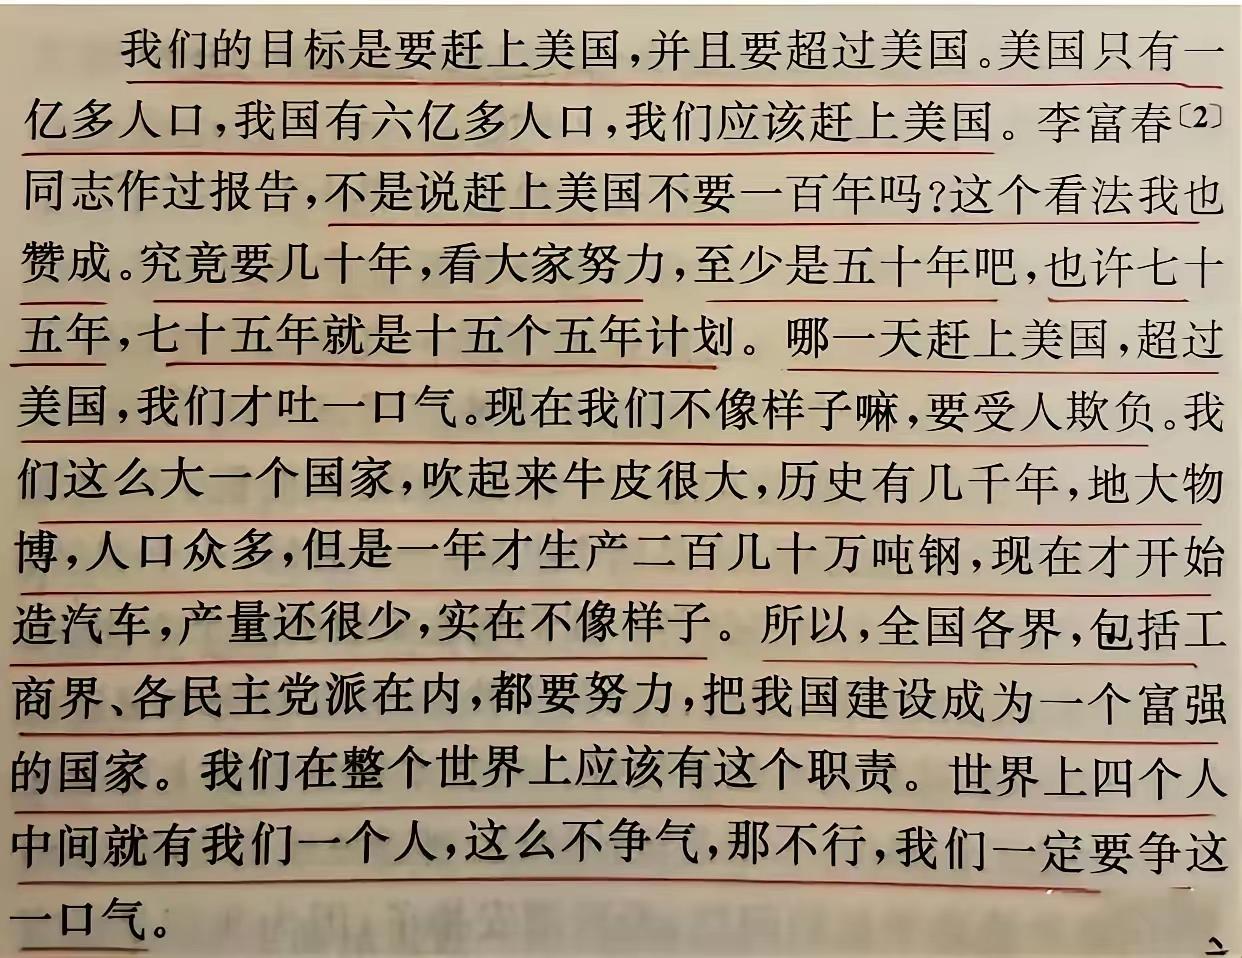 我们的目标是要赶上美国,并且要超过美国。美国只有一
亿多人口,我国有六亿多人口,我们应该赶上美国。李富春〔2〕
同志作过报告,不是说赶上美国不要一百年吗?这个看法我也
赞成。究竟要几十年,看大家努力,至少是五十年吧,也许七十
五年,七十五年就是十五个五年计划。哪一天赶上美国,超过
美国,我们才吐一口气。现在我们不像样子嘛,要受人欺负。我
们这么大一个国家,吹起来牛皮很大,历史有几千年,地大物
博,人口众多,但是一年才生产二百几十万吨钢,现在才开始
造汽车,产量还很少,实在不像样子。所以,全国各界,包括工
商界、各民主党派在内,都要努力,把我国建设成为一个富强
的国家。我们在整个世界上应该有这个职责。世界上四个人
中间就有我们一个人,这么不争气,那不行,我们一定要争这
一口气。